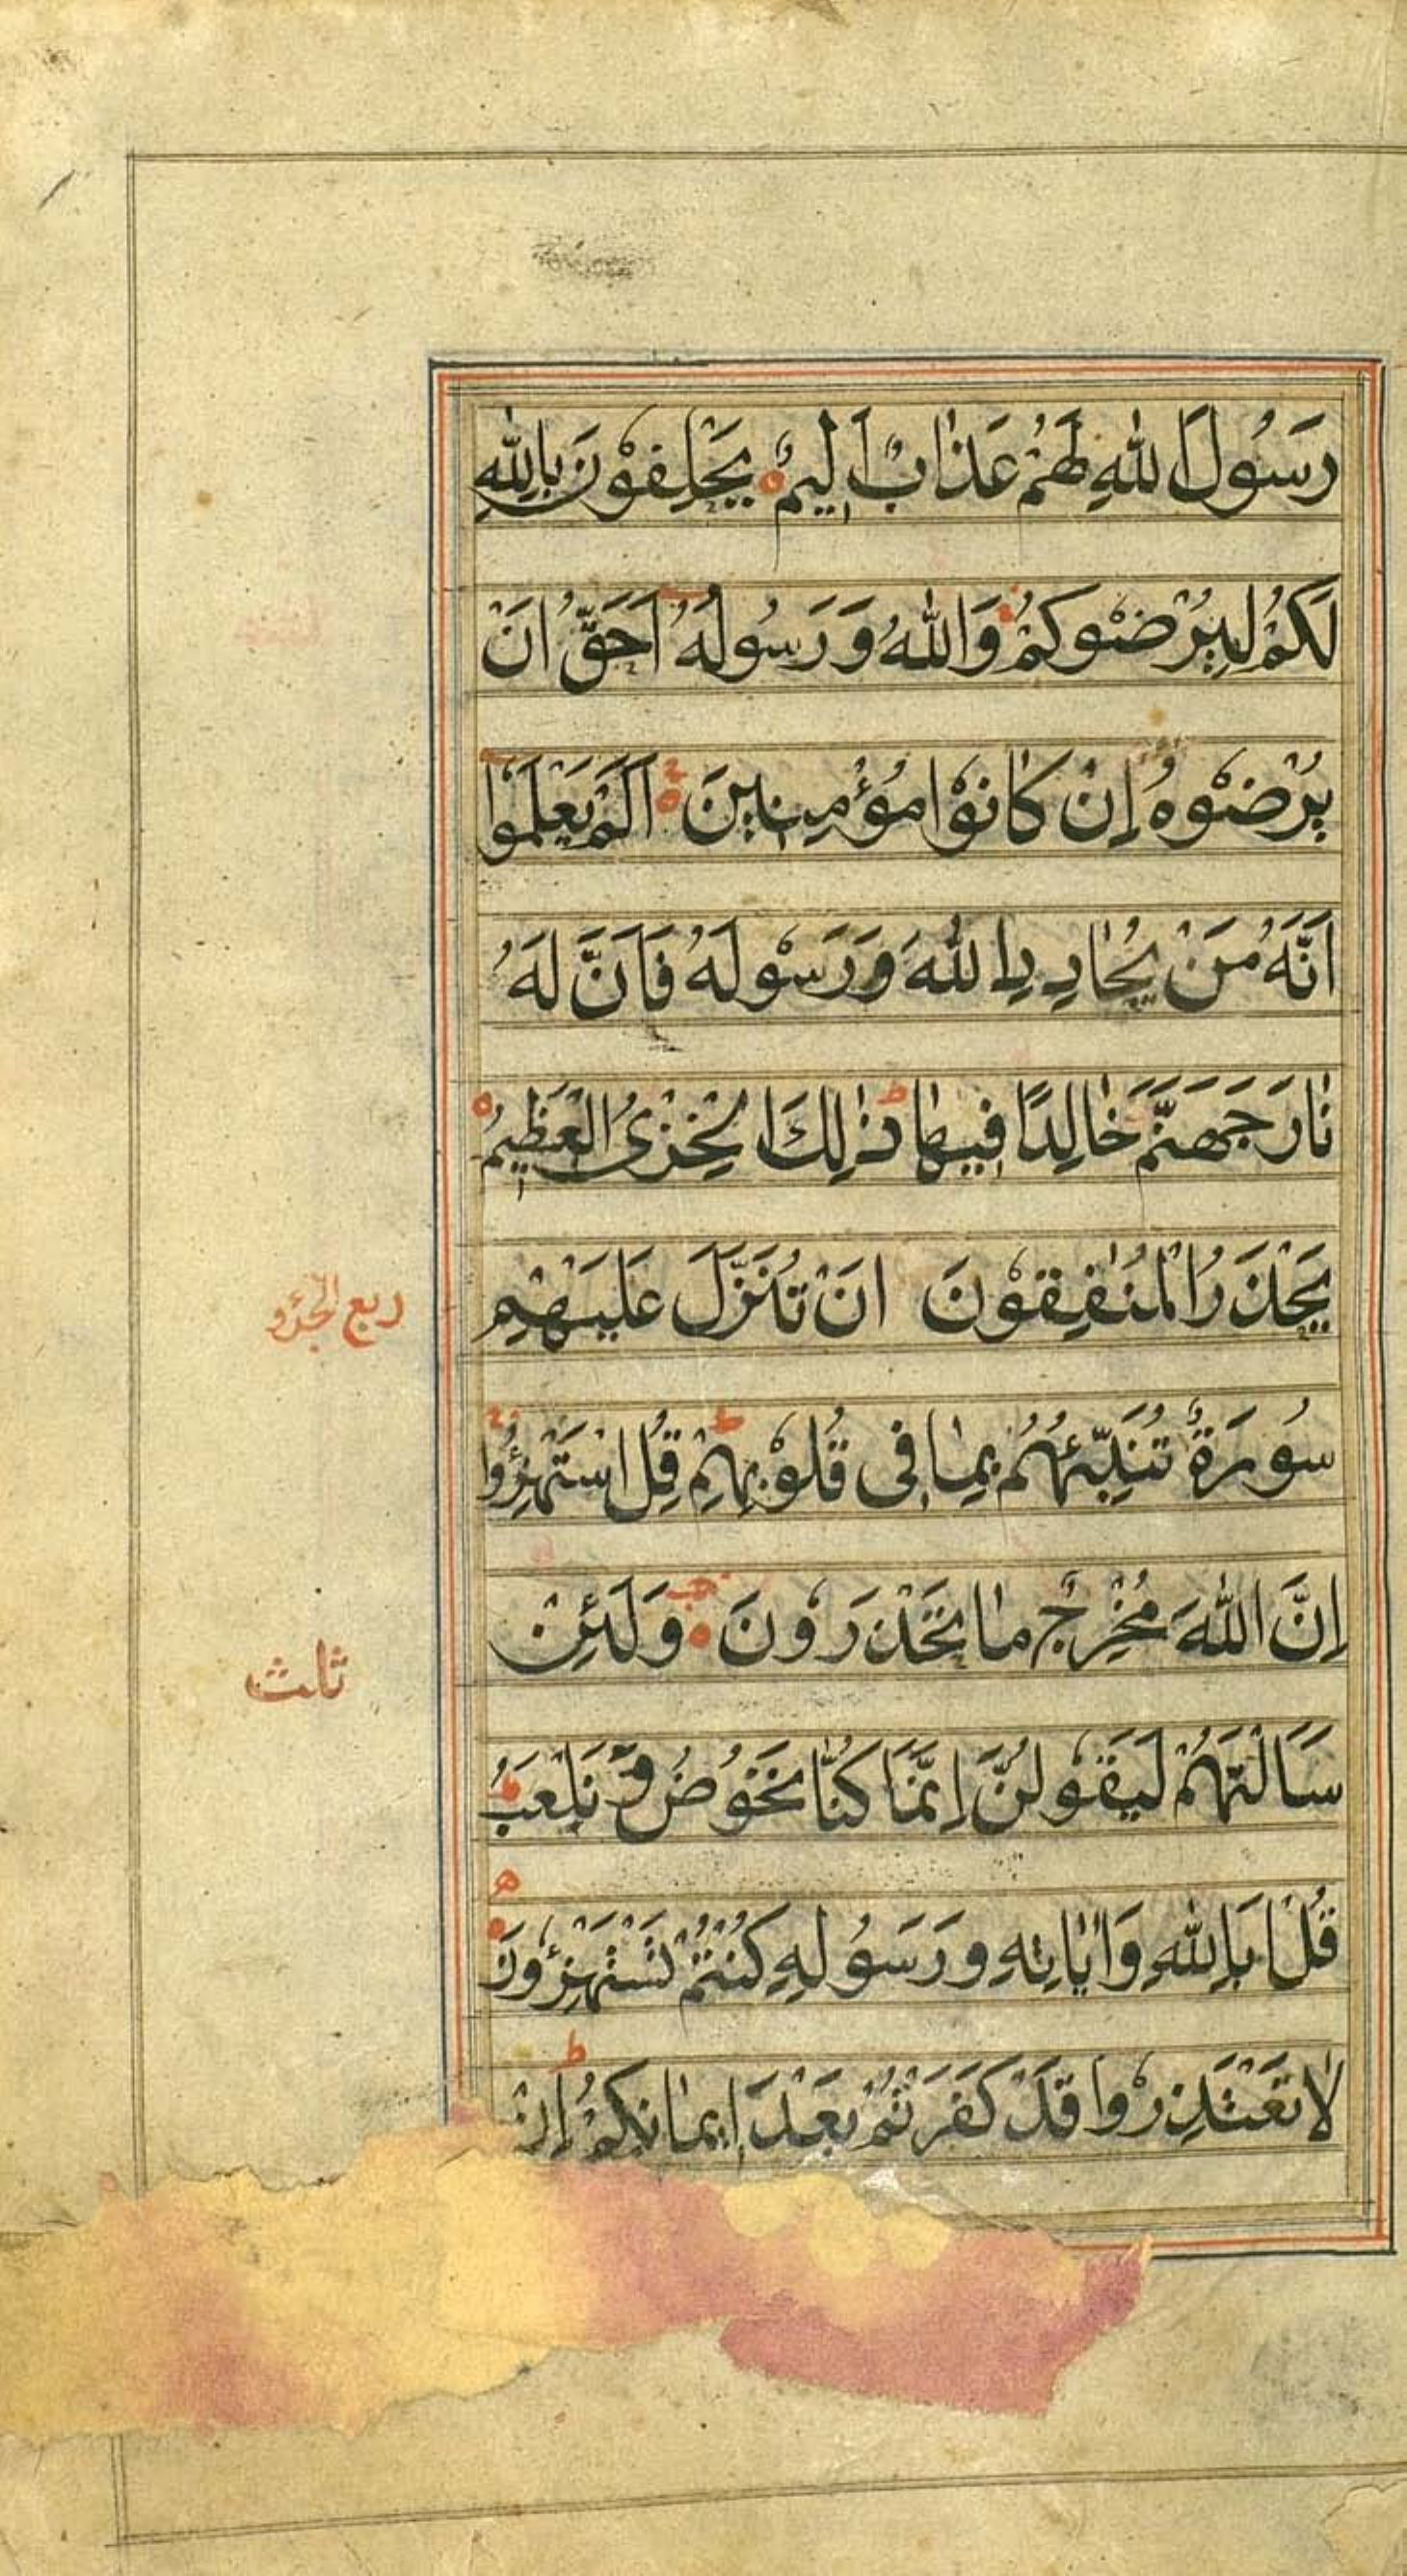 رَسُولَ اللهِ لَهُمْ عَذَابٌ اَلِيمٌ يَحْلِفُوْنَ بِاللهِ
لَكُمْ لِيُرْضُوكُمْ وَاللهُ وَرَسُولُهُ اَحَقُّ اَنْ
يُرْضُوْهُ اِنْ كَانُوْا مُؤْمِنِينَ اَلَمْ يَعْلَمُوْا
اَنَّهُ مَنْ يُحَادِدِ اللهَ وَرَسُوْلَهُ فَاَنَّ لَهُ
نَارَ جَهَنَّمَ خَالِدًا فِيهَا ذٰلِكَ الْخِزْىُ الْعَظِيمُ
يَحْذَرُ الْمُنٰفِقُوْنَ اَنْ تُنَزَّلَ عَلَيْهِمْ
ربع الجزو
سُورَةٌ تُنَبِّئُهُمْ بِمَا فِى قُلُوْبِهِمْ قُلِ اسْتَهْزِؤُا
اِنَّ اللهَ مُخْرِجٌ مَا تَحْذَرُوْنَ وَلَئِنْ
ثلث
سَاَلْتَهُمْ لَيَقُوْلُنَّ اِنَّمَا كُنَّا نَخُوْضُ وَنَلْعَبُ
قُلْ اَبِاللهِ وَاٰيَاتِهِ وَرَسُوْلِهِ كُنْتُمْ تَسْتَهْزِؤُوْنَ
لَا تَعْتَذِرُوْا قَدْ كَفَرْتُمْ بَعْدَ اِيمَانِكُمْ اِنْ